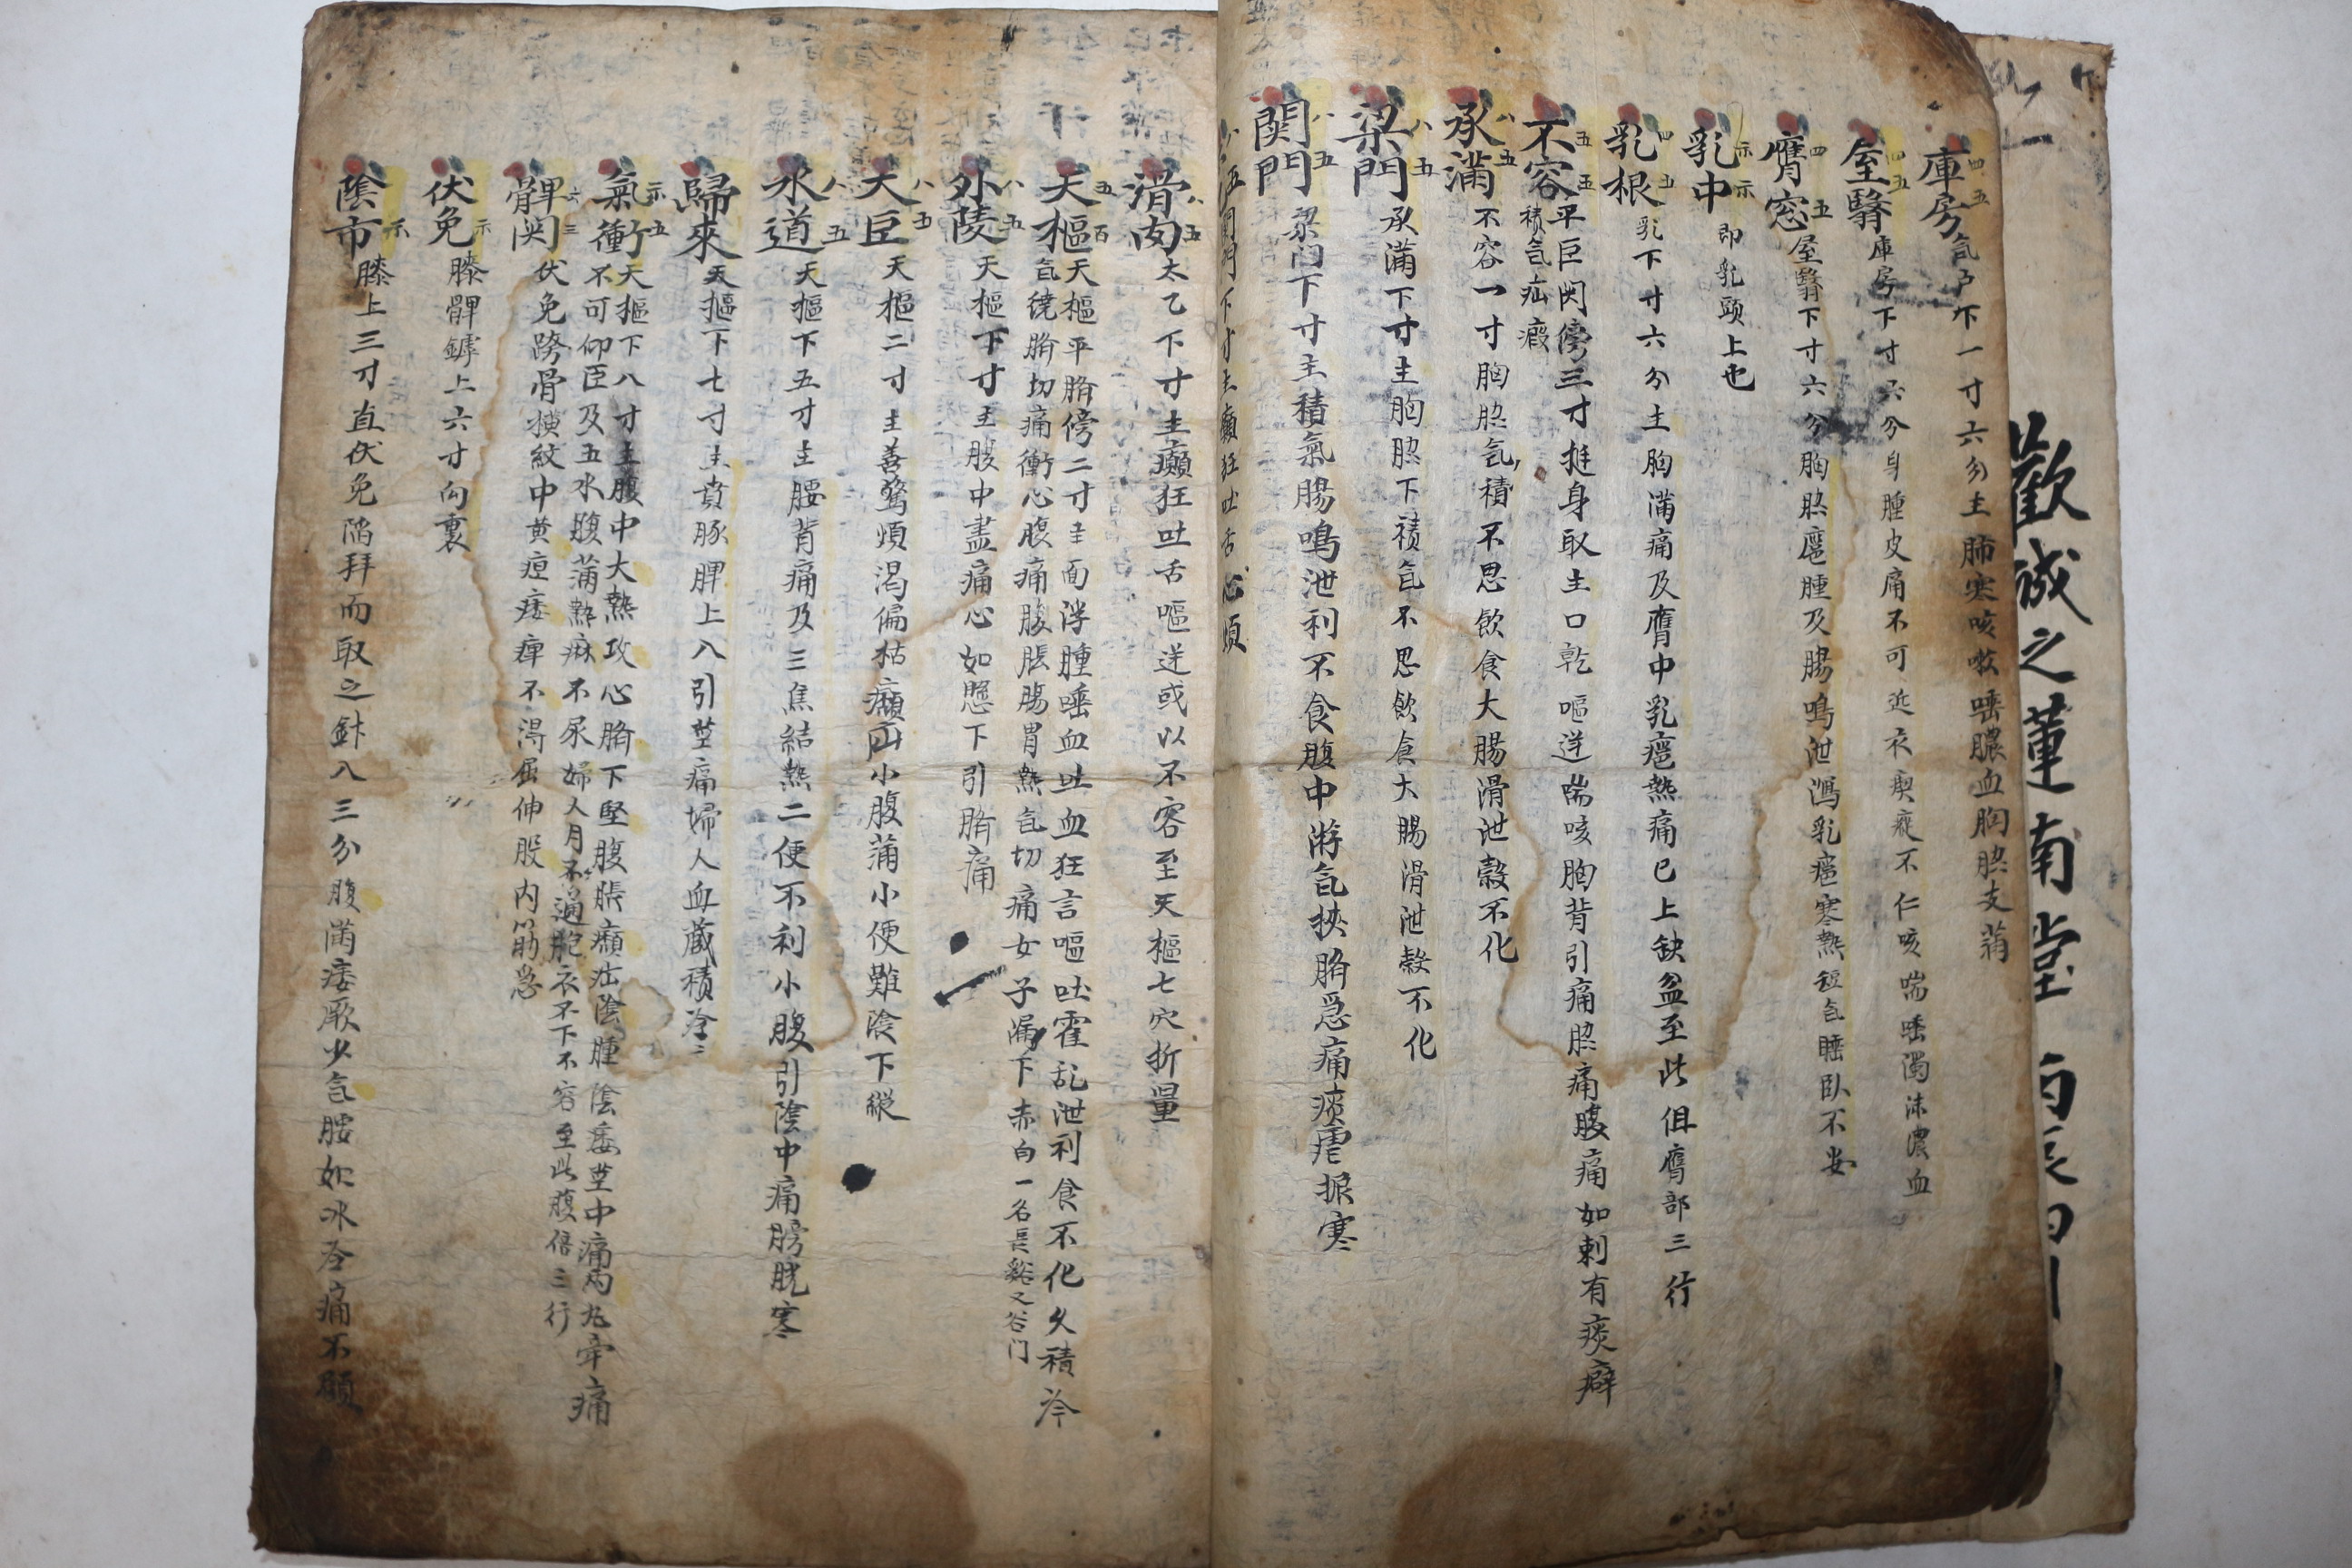 歡誠之蓮南堂
庫房 四五 气戶下一寸六分主肺寒咳嗽唾膿血胸脇支蒲
屋翳 四五 庫房下寸六分身腫皮痛不可近衣不仁咳喘唾濁沫濃血
膺窓 四五 屋翳下寸六分胸脇腫及腸鳴泄瀉乳寒熱短气睡臥不安
乳中 示示 即乳頭上也
乳根 四五 乳下寸六分主胸滿痛及膺中乳熱痛已上缺盆至此俱膺部三行
不容 五五 平巨闕傍三寸挺身取主口乾嘔逆喘咳胸背引痛脇痛腹痛如刺有痰癖
積气疝瘕
承滿 八五 不容一寸胸脇气積不思飲食大腸滑泄穀不化
梁門 八五 承滿下寸主胸脇下積气不思飲食大腸滑泄穀不化
関門 八五 梁门下寸主積氣腸鳴泄利不食腹中游气挾臍急痛痰瘧振寒
八五 関門下寸主癲狂吐舌心煩
滑肉 八五 太乙下寸主癲狂吐舌嘔逆或以不容至天樞七穴折量
天樞 五百 天樞平臍傍二寸主面浮腫唾血吐血狂言嘔吐霍乱泄利食不化久積冷
气繞臍切痛衝心腹痛腹脹腸胃熱气切痛女子漏下赤白一名長谿又谷门
外陵 八五 天樞下寸主腹中盡痛心如懸下引臍痛
大巨 八五 天樞二寸主善驚煩渴偏枯癲疝小腹蒲小便難陰下縱
水道 八五 天樞下五寸主腰背痛及三焦結熱二便不利小腹引陰中痛膀胱寒
歸來 天樞下七寸主賁豚脾上八引莖痛婦人血蔵積冷
氣衝 示五 天樞下八寸主腹中大熱攻心臍下堅腹脹癲疝陰腫陰痿莖中痛両丸牽痛
不可仰臣及五水腹蒲熱麻不尿婦人月不通胞衣不下不容至此腹倍三行
髀関 六三 伏免跨骨橫紋中黄疸痿痺不淂屈伸股内筋急
伏免 示 膝髀罅上六寸向裏
陰市 示 膝上三寸直伏免陷拜而取之針八三分腹滿痿厥少气腰如冰冷痛不願